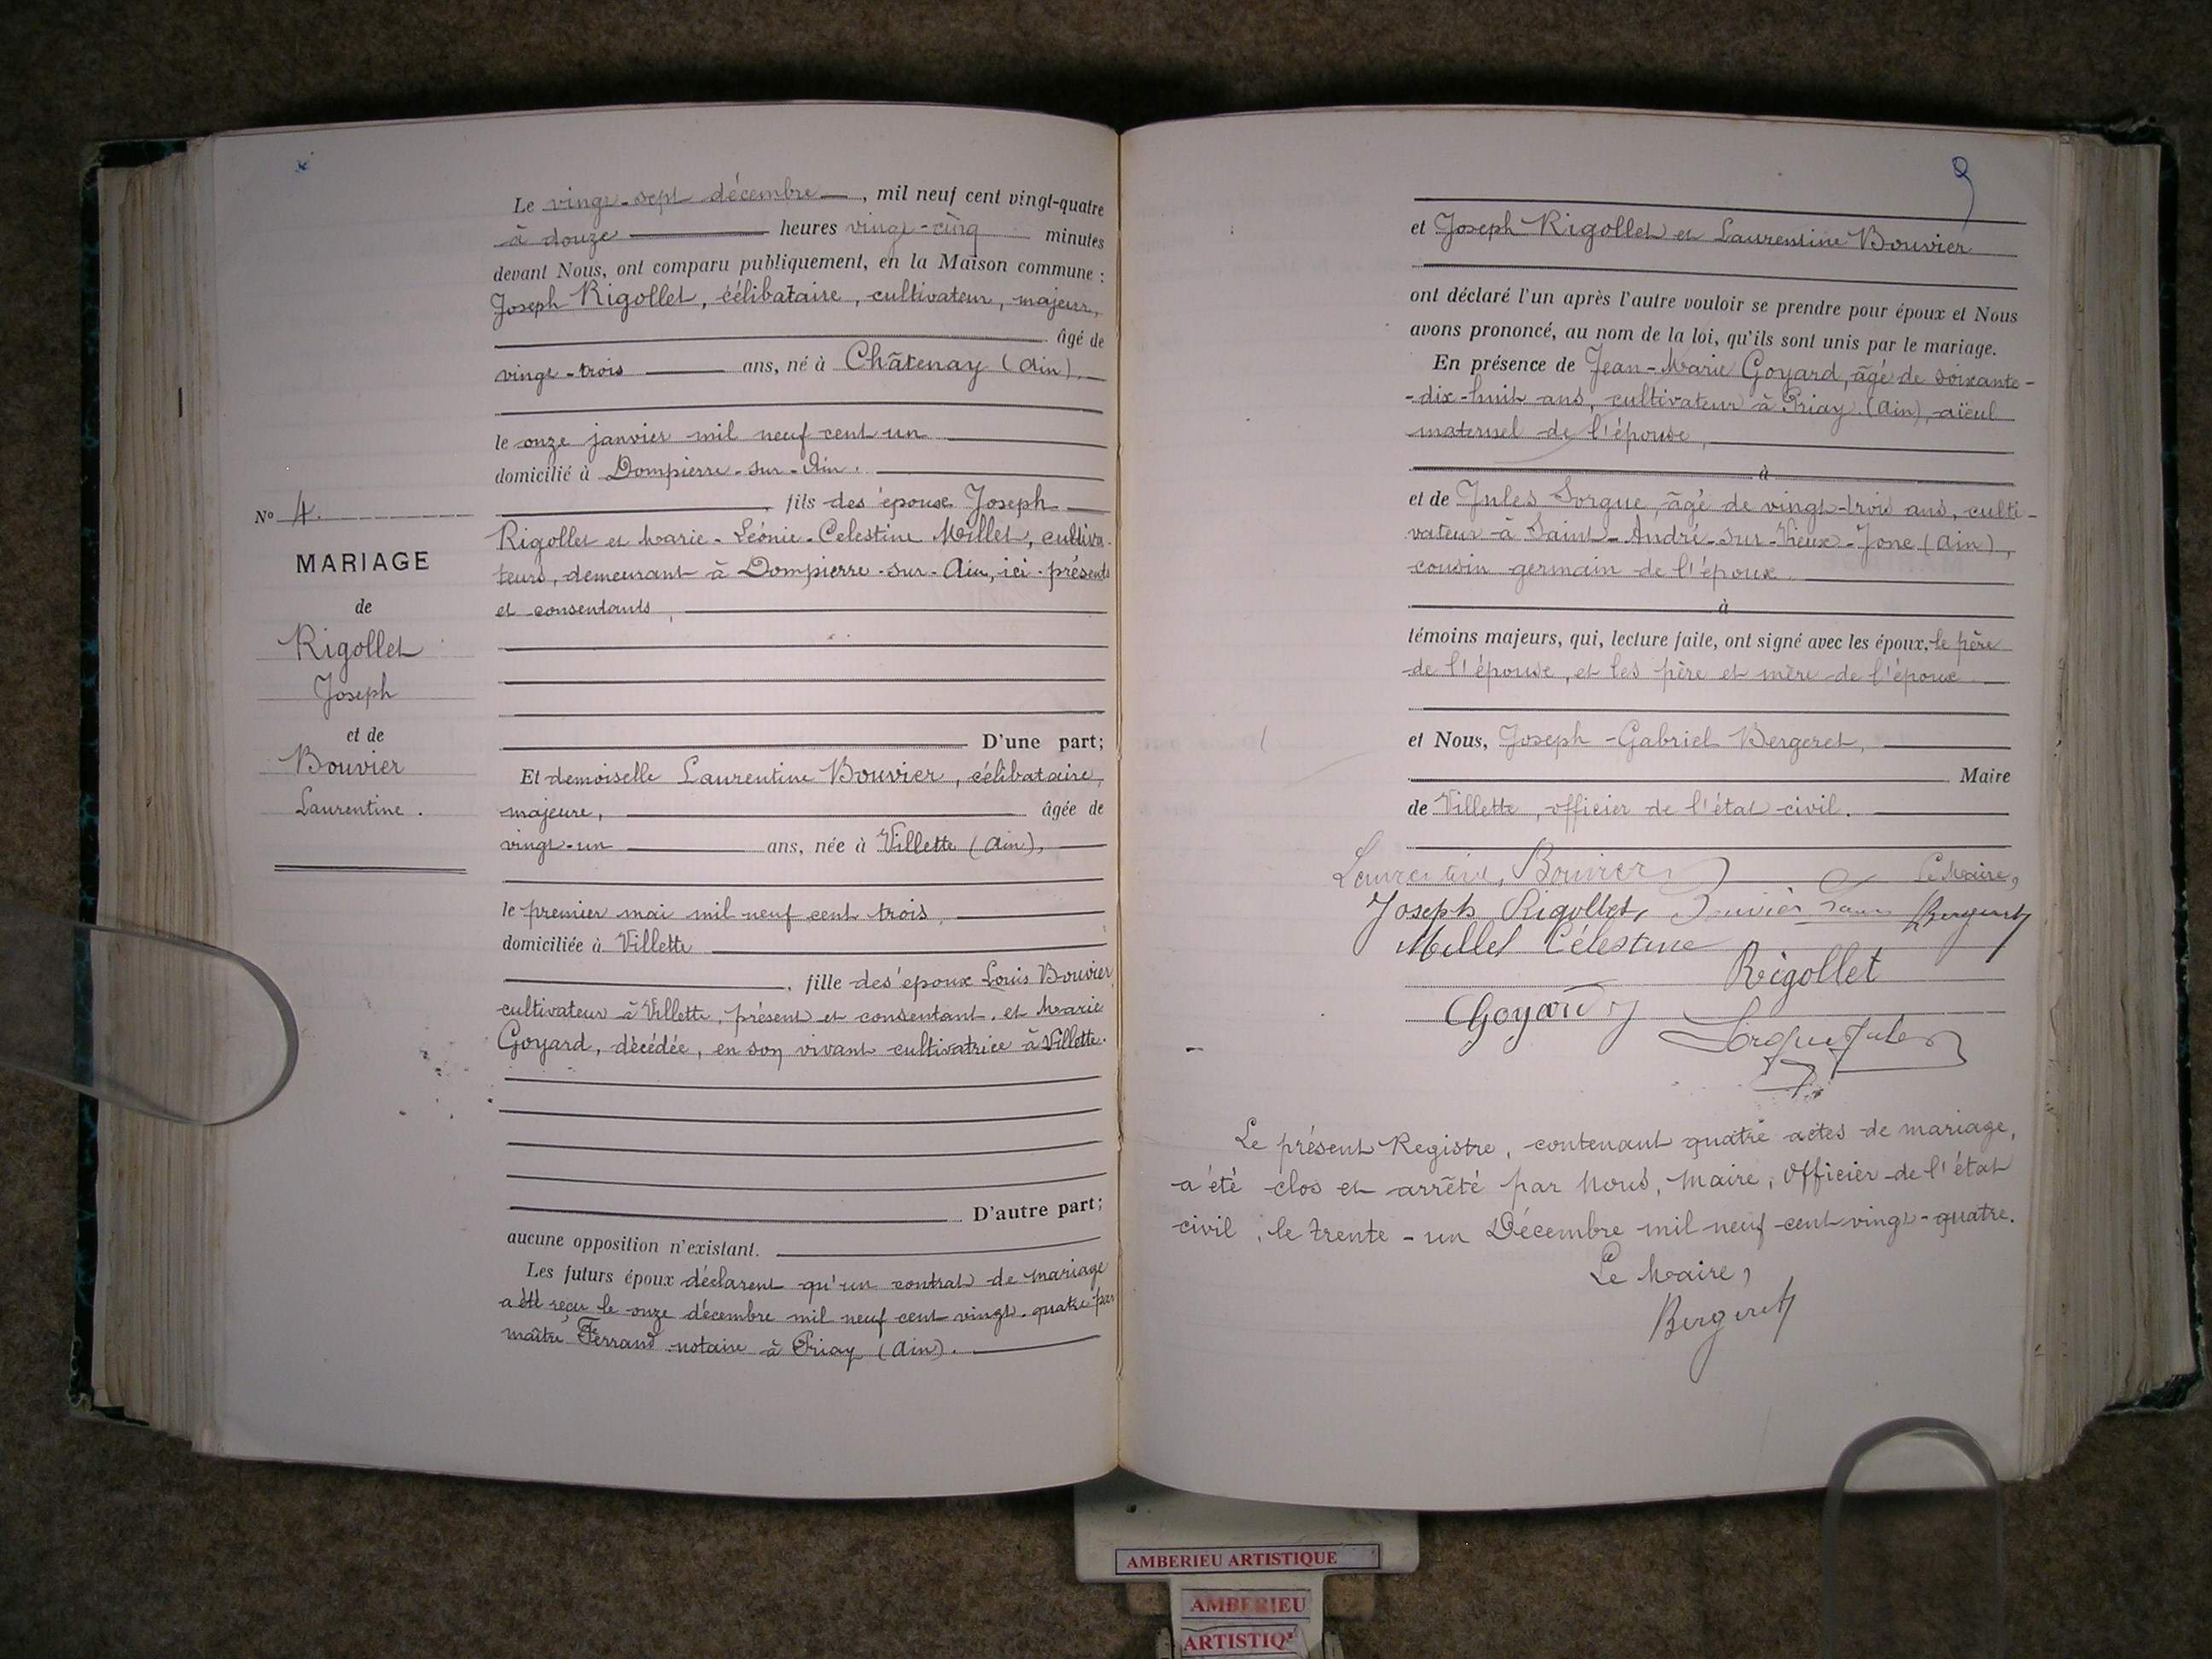 Le vingt-sept décembre, mil neuf cent vingt-quatre
à douze heures vingt-cinq minutes
devant Nous, ont comparu publiquement, en la Maison commune :
Joseph Rigollet, célibataire, cultivateur, majeur,
âgé de
vingt-trois ans, né à Châtenay (Ain),
le onze janvier mil neuf cent un
domicilié à Dompierre-sur-Ain.
fils des époux Joseph
Rigollet et Marie-Léonie-Celestine Millet, cultiva-
teurs, demeurant à Dompierre-sur-Ain, ici présents
et consentants,
D'une part;
Et demoiselle Laurentine Bouvier, célibataire,
majeure, âgée de
vingt-un ans, née à Villette (Ain),
le premier mai mil neuf cent trois,
domiciliée à Villette
, fille des époux Louis Bouvier,
cultivateur à Villette, présent et consentant, et Marie
Goyard, décédée, en son vivant cultivatrice à Villette.
D'autre part;
aucune opposition n'existant.
Les futurs époux déclarent qu'un contrat de mariage
a été reçu le onze décembre mil neuf cent vingt-quatre par
maître Ferrand notaire à Priay (Ain).
N° 4.
MARIAGE
de
Rigollet
Joseph
et de
Bouvier
Laurentine.
9
et Joseph Rigollet et Laurentine Bouvier
ont déclaré l'un après l'autre vouloir se prendre pour époux et Nous
avons prononcé, au nom de la loi, qu'ils sont unis par le mariage.
En présence de Jean-Marie Goyard, âgé de soixante-
-dix-huit ans, cultivateur à Priay (Ain), aïeul
maternel de l'épouse,
à
et de Jules Sorgue, âgé de vingt-trois ans, culti-
vateur à Saint-André-sur-Vieux-Jonc (Ain),
cousin germain de l'époux.
à
témoins majeurs, qui, lecture faite, ont signé avec les époux, le père
de l'épouse, et les père et mère de l'époux
et Nous, Joseph-Gabriel Bergeret,
Maire
de Villette, officier de l'état civil.
Laurentine Bouvier
Le Maire,
Joseph Rigollet, Bouvier Bergeret
Millet Célestine
Rigollet
Goyard
Sorgue Jules
Le présent Registre, contenant quatre actes de mariage,
a été clos et arrêté par Nous, Maire, Officier de l'état
civil, le trente-un Décembre mil neuf cent vingt-quatre.
Le Maire,
Bergeret
AMBERIEU ARTISTIQUE
AMBERIEU
ARTISTIQ